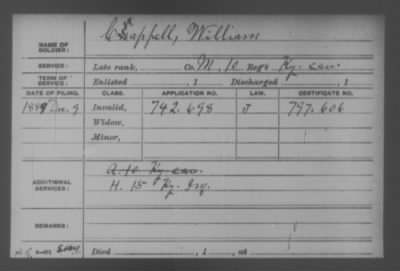 Chappell, William
NAME OF SOLDIER:
SERVICE: Late rank, Co. M, 10 Reg't Ky. Cav.
TERM OF SERVICE: Enlisted , 1 Discharged , 1
DATE OF FILING. CLASS. APPLICATION NO. LAW. CERTIFICATE NO.
1889 Dec. 9 Invalid, 742.698 J 797.606
Widow,
Minor,
A. 10 Ky. Cav.
ADDITIONAL SERVICES: H. 15 Ky. Inf.
REMARKS:
Died , 1 , at